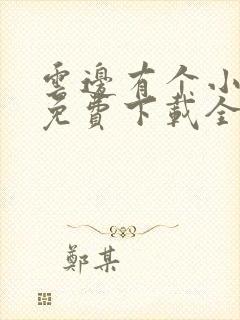 雲邊有个小
免費下載全
鄭某